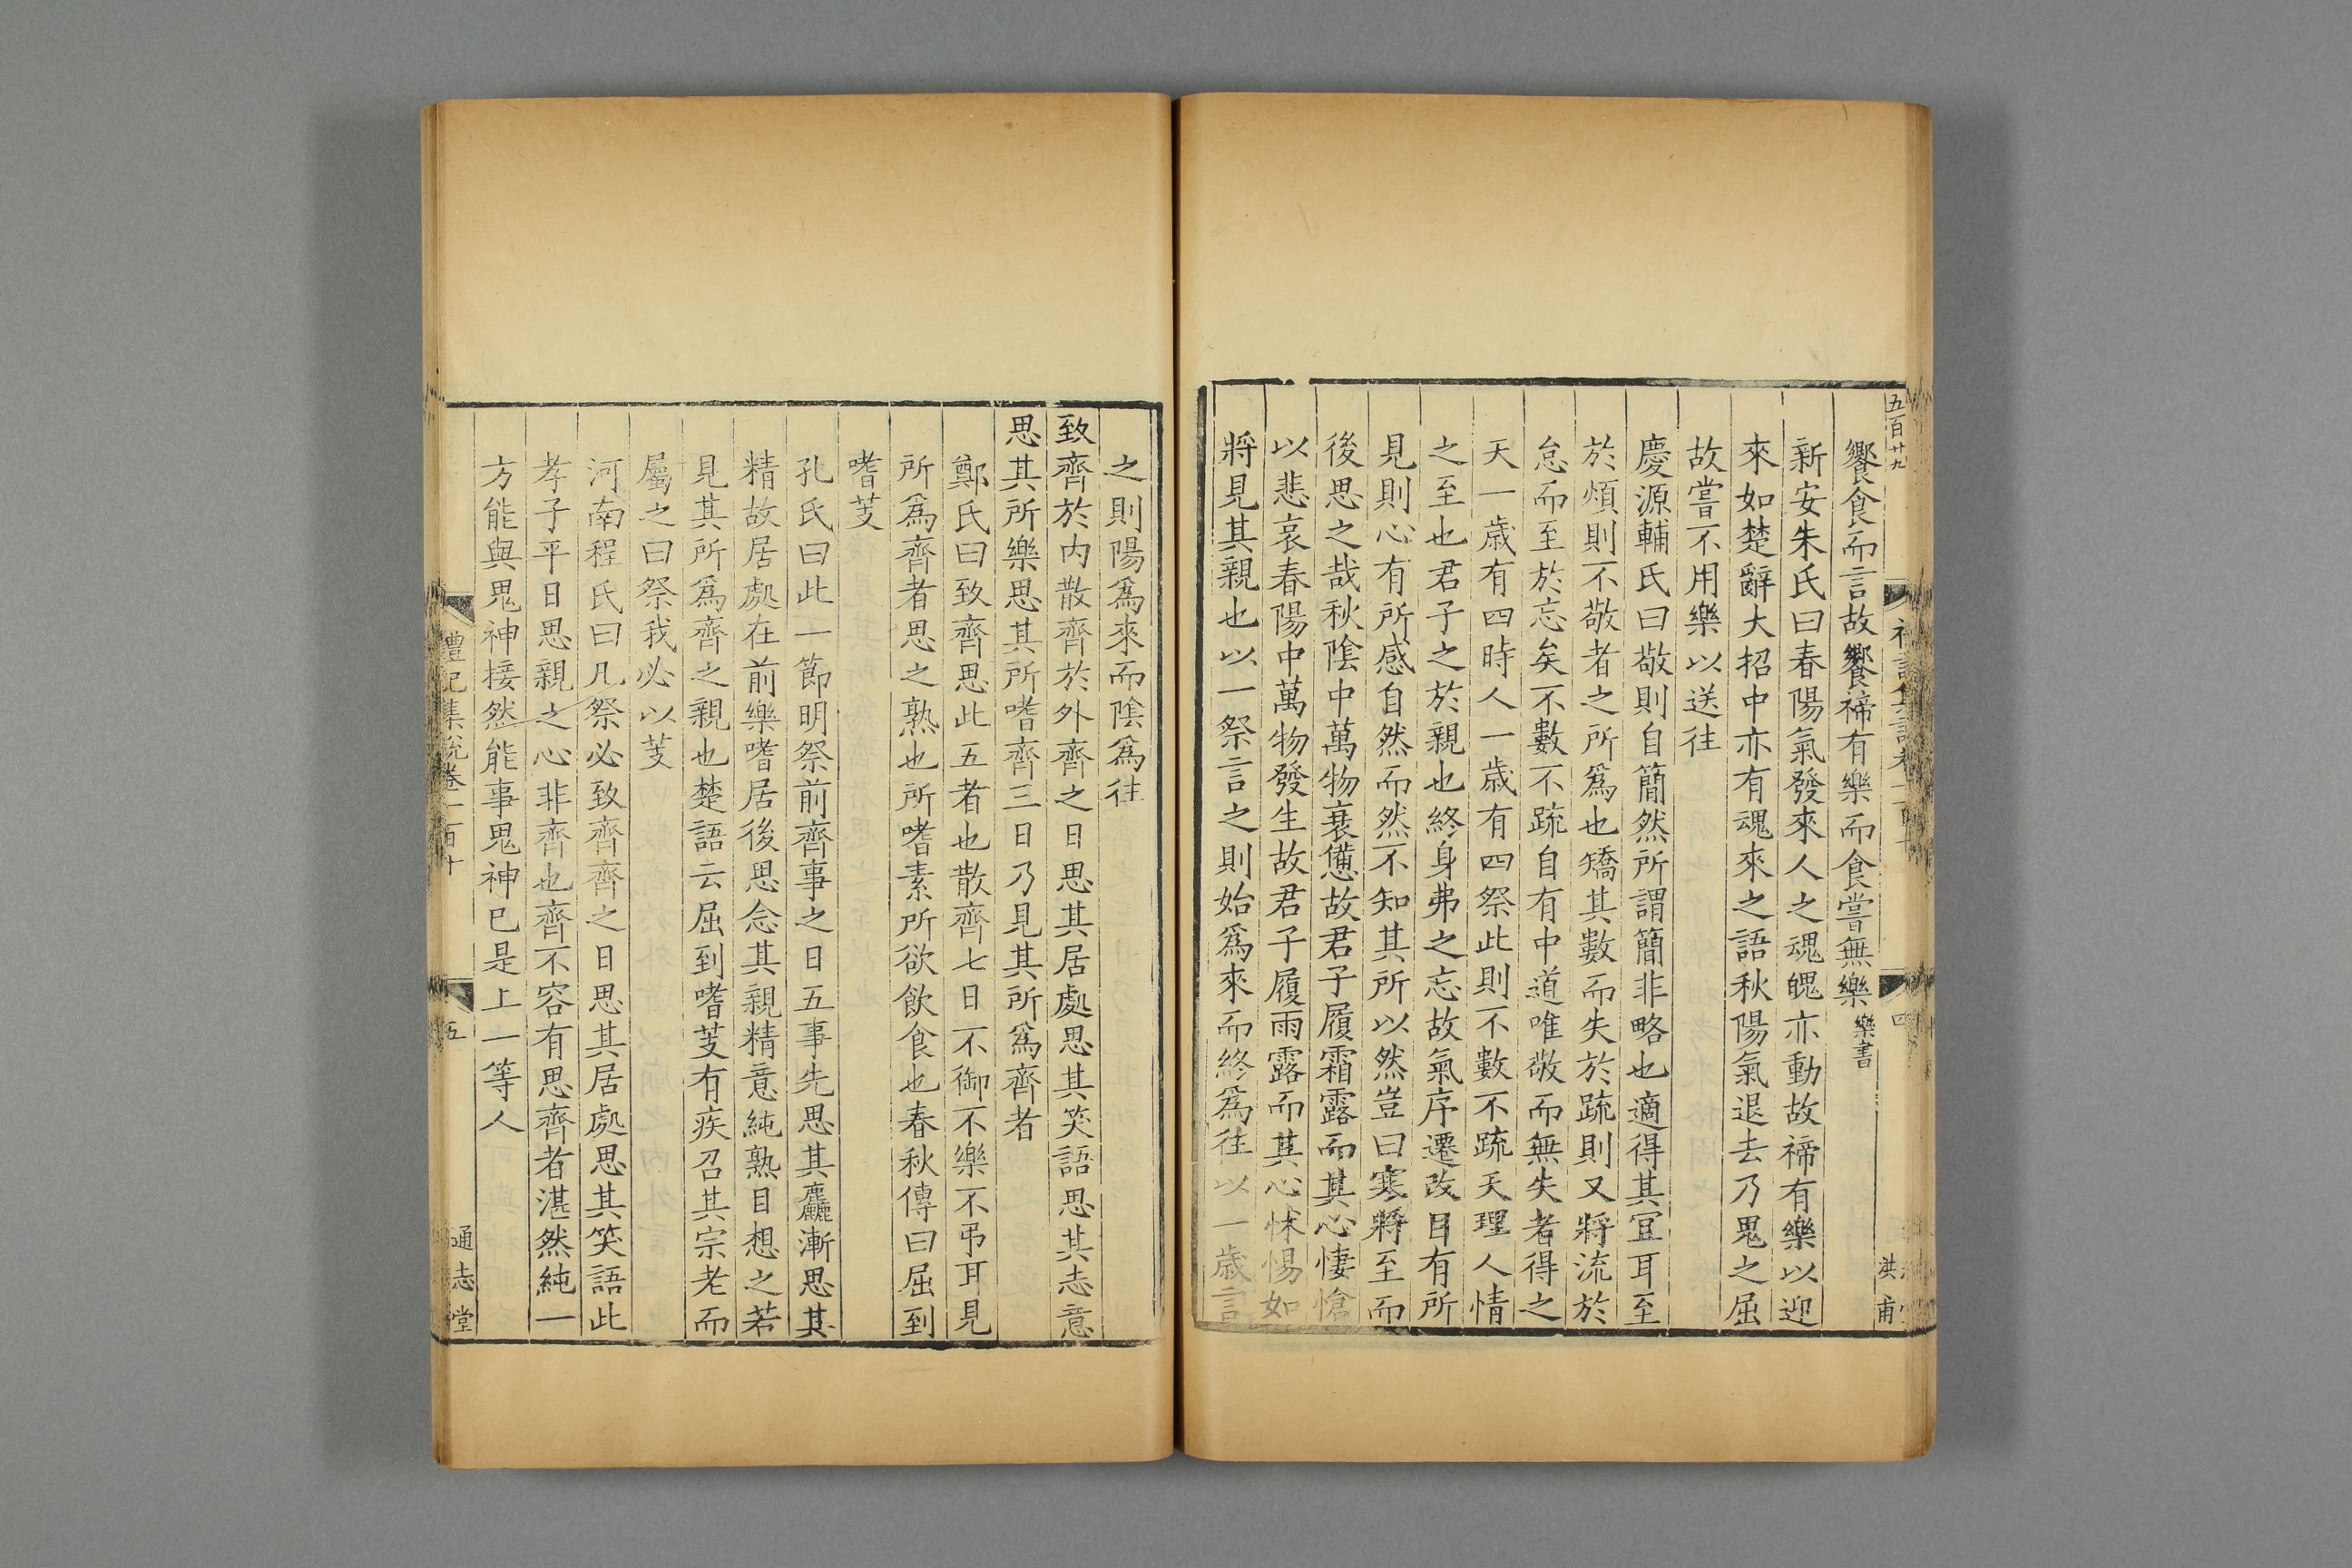 五百廿九
饗食而言故饗禘有樂而食嘗無樂樂書
新安朱氏曰春陽氣發來人之魂魄亦動故禘有樂以迎
來如楚辭大招中亦有魂來之語秋陽氣退去乃鬼之屈
故嘗不用樂以送往
慶源輔氏曰敬則自簡然所謂簡非略也適得其冝耳至
於煩則不敬者之所爲也矯其數而失於疏則又將流於
怠而至於忘矣不數不疏自有中道唯敬而無失者得之
天一歲有四時人一歲有四祭此則不數不疏天理人情
之至也君子之於親也終身弗之忘故氣序遷改目有所
見則心有所感自然而然不知其所以然豈曰寒將至而
後思之哉秋陰中萬物衰憊故君子履霜露而其心悽愴
以悲哀春陽中萬物發生故君子履雨露而其心怵惕如
將見其親也以一祭言之則始爲來而終爲往以一歲言
四
洪
甫
之則陽爲來而陰爲往
致齊於内散齊於外齊之日思其居處思其笑語思其志意
思其所樂思其所嗜齊三日乃見其所爲齊者
鄭氏曰致齊思此五者也散齊七日不御不樂不弔耳見
所爲齊者思之熟也所嗜素所欲飲食也春秋傳曰屈到
嗜芰
孔氏曰此一節明祭前齊事之日五事先思其麤漸思其
精故居處在前樂嗜居後思念其親精意純熟目想之若
見其所爲齊之親也楚語云屈到嗜芰有疾召其宗老而
屬之曰祭我必以芰
河南程氏曰凡祭必致齊齊之日思其居處思其笑語此
孝子平日思親之心非齊也齊不容有思齊者湛然純一
方能與鬼神接然能事鬼神已是上一等人
禮記集說卷一百十
五
通志堂